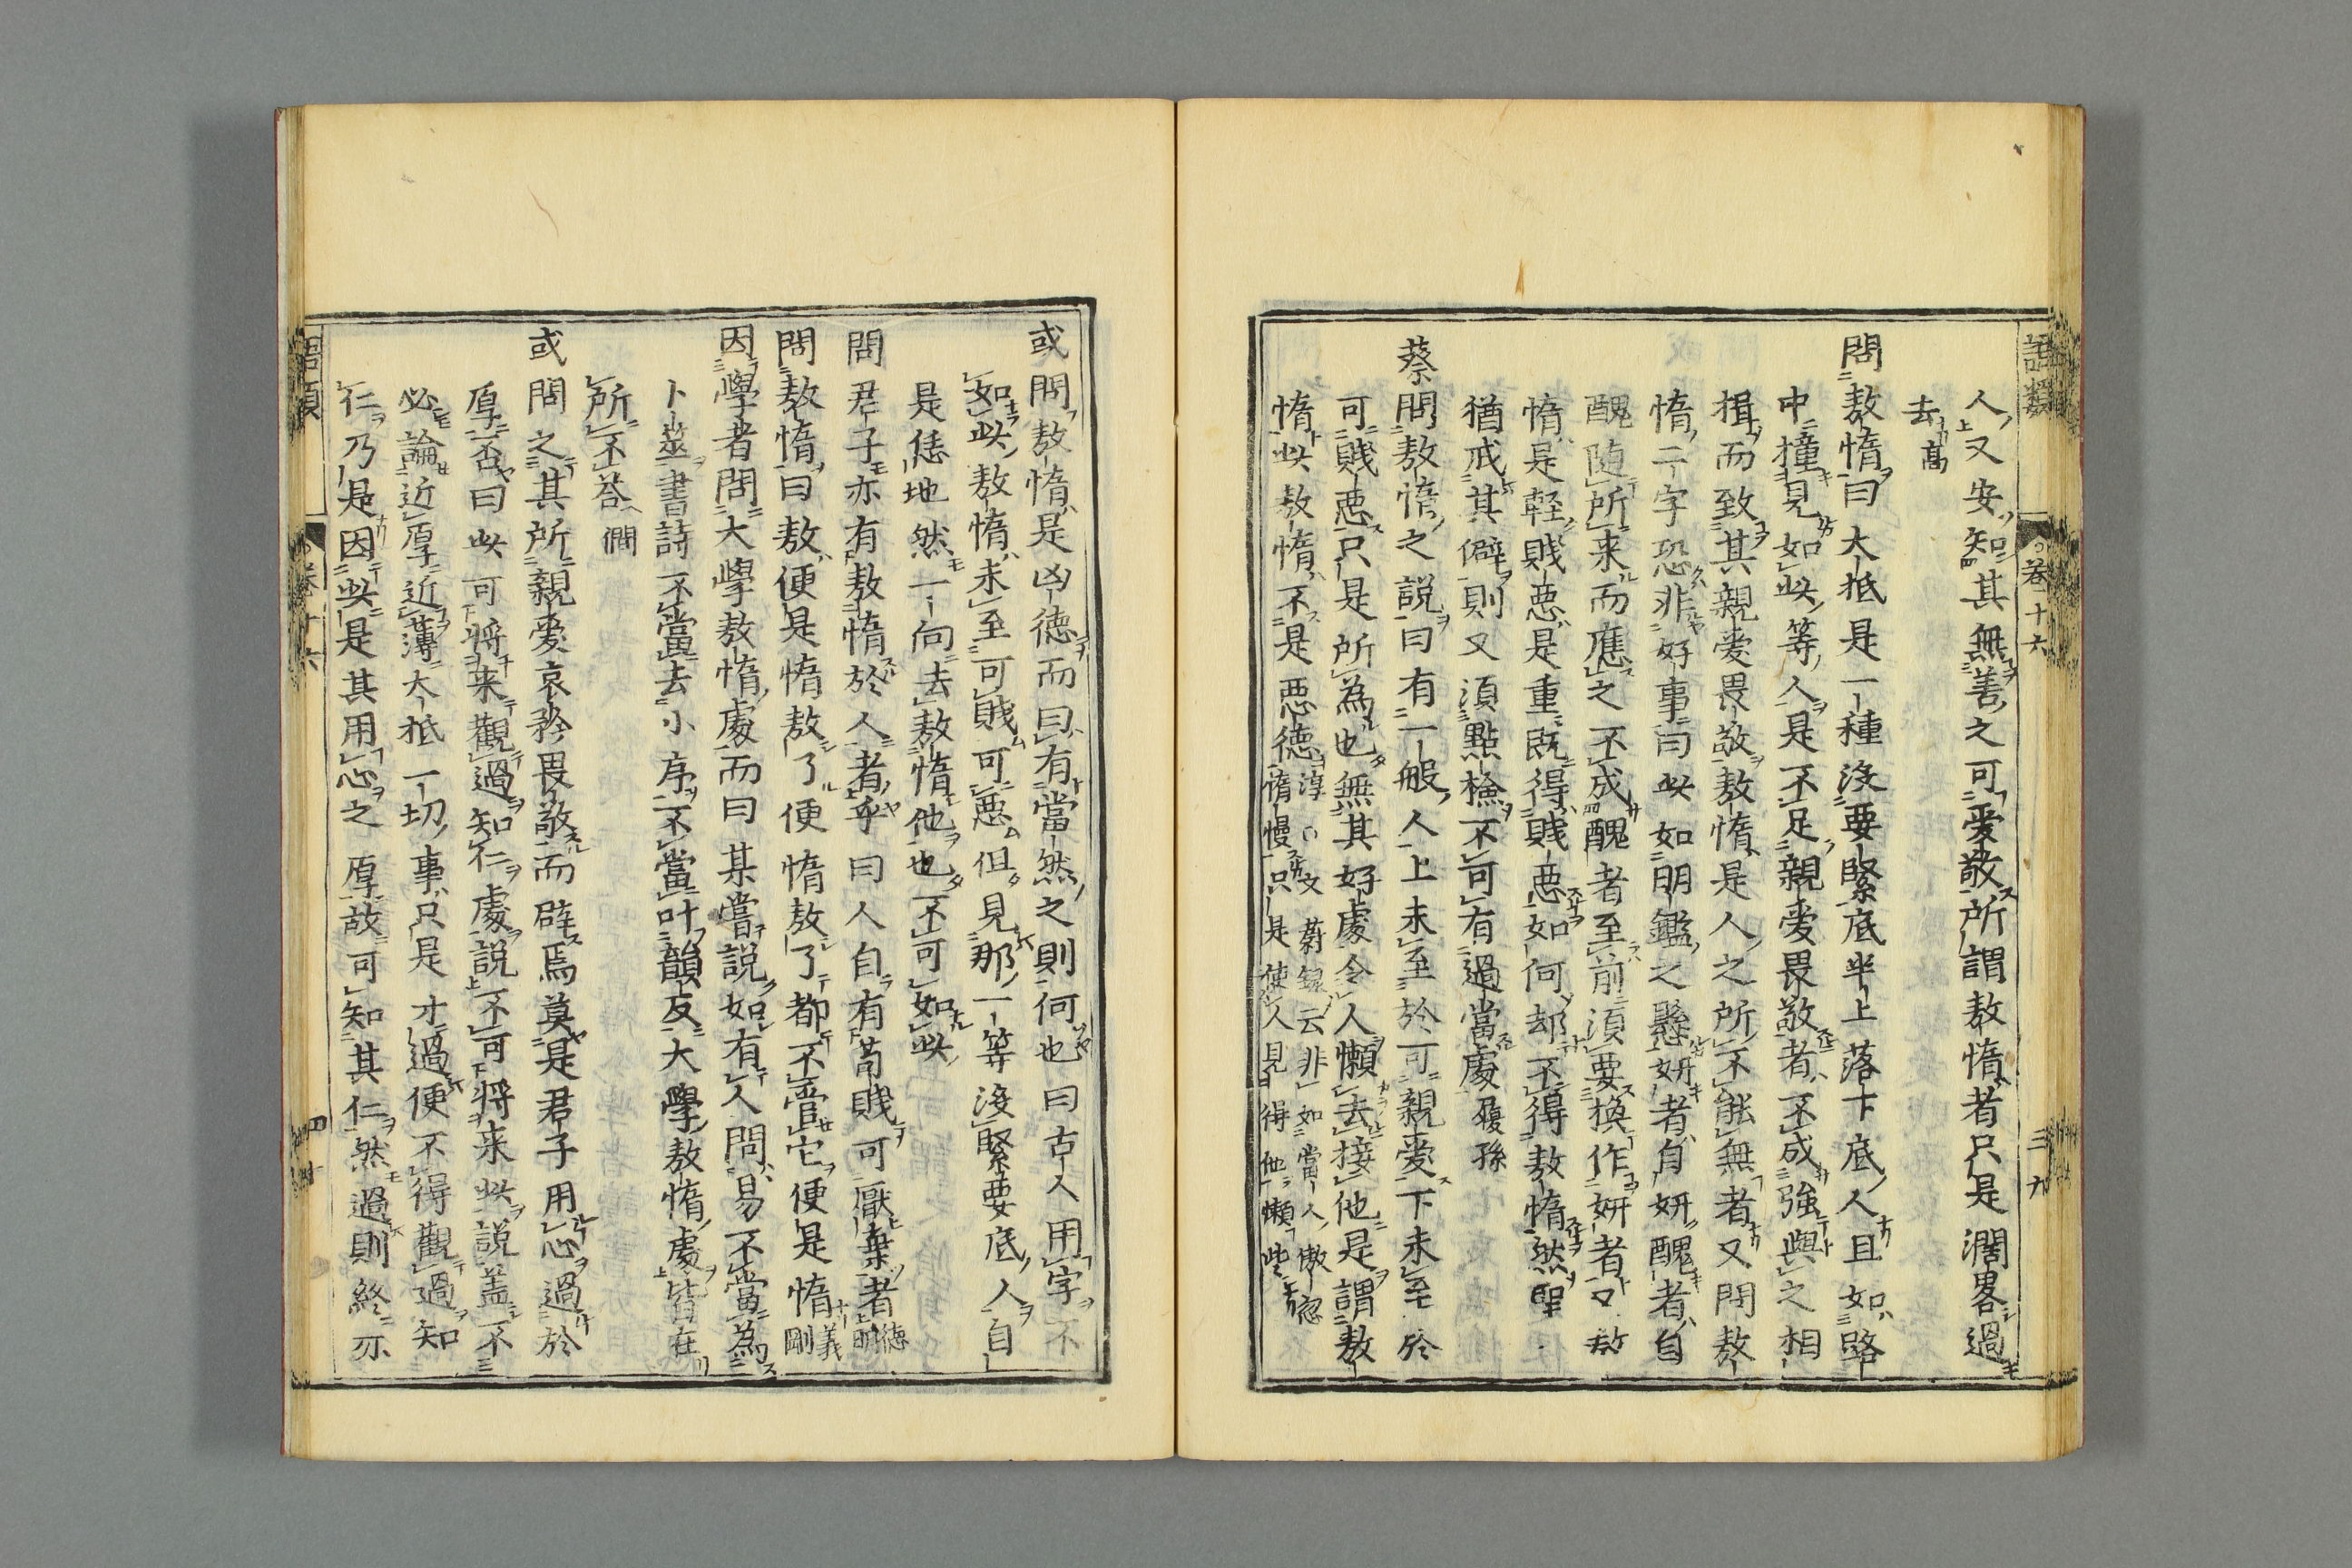 語類
卷十六
三九
人又安知其無善之可愛敬所謂敖惰者只是濶畧過
去髙
問敖惰曰大抵是一種沒要緊底半上落下底人且如路
中撞見如此等人是不足親愛畏敬者不成強與之相
揖而致其親愛畏敬敖惰是人之所不能無者又問敖
惰二字恐非好事曰此如明鑑之懸妍者自妍醜者自
醜随所来而應之不成醜者至前須要換作妍者又敖
惰是輕賤惡是重既得賤惡如何却不得敖惰然聖
猶戒其僻則又須點檢不可有過當處履孫
蔡問敖惰之説曰有一般人上未至於可親愛下未至於
可賤惡只是所為也無其好處令人懶去接他是謂敖
惰此敖惰不是惡德淳〇文蔚錄云非如常人傲忽
惰慢只是使人見得他懶些
或問敖惰是凶德而曰有當然之則何也曰古人用字不
如此敖惰未至可賤可惡但見那一等沒緊要底人自
是恁地然一向去敖惰他也不可如此
問君子亦有敖惰於人者乎曰人自有苟賤可厭棄者德明
問敖惰曰敖便是惰敖了便惰敖了都不管它便是惰義剛
因學者問大學敖惰處而曰某嘗説如有人問易不當為
卜筮書詩不當去小序不當叶韻及大學敖惰處皆在
所不荅僩
或問之其所親愛哀矜畏敬而辟焉莫是君子用心過於
厚否曰此可将来觀過知仁處説不可将来此説蓋不
必論近厚近薄大抵一切事只是才過便不得觀過知
仁乃是因此是其用心之厚故可知其仁然過則終亦
語類
卷十六
四十